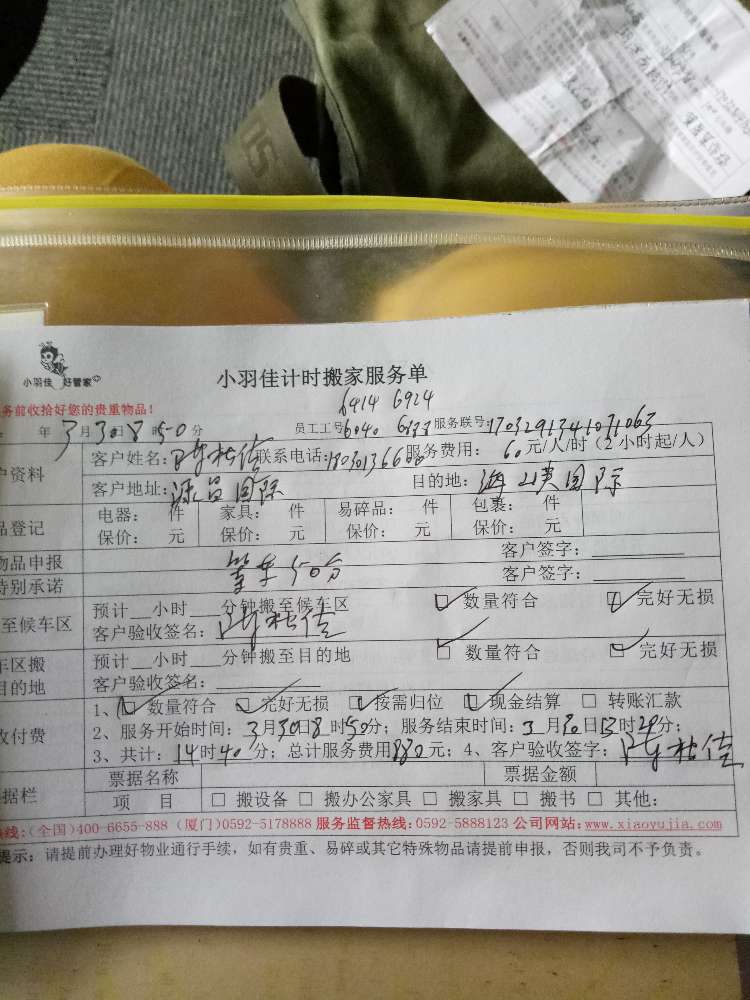 小羽佳 好管家
小羽佳计时搬家服务单
务前收拾好您的贵重物品!
6414 6924
年3月30日8时50分 员工工号: 6040 服务联号:
户资料 客户姓名: 联系电话: 服务费用: 60元/人/时(2小时起/人)
客户地址:源昌国际 目的地:
品登记 电器: 件 家具: 件 易碎品: 件 包裹: 件
保价: 元 保价: 元 保价: 元 保价: 元
物品申报 客户签字:
特别承诺 客户签字:
至候车区 预计__小时___分钟搬至候车区 ☑ 数量符合 ☑ 完好无损
客户验收签名:
车区搬 预计__小时___分钟搬至目的地 ☑ 数量符合 ☑ 完好无损
目的地 客户验收签名:
收付费 1、☑ 数量符合 ☑ 完好无损 ☑ 按需归位 ☑ 现金结算 □ 转账汇款
2、服务开始时间:3月30日8时50分;服务结束时间:3月30日13时29分;
3、共计:14时40分;总计服务费用880元;4、客户验收签字:
据栏 票据名称 票据金额
项 目 □ 搬设备 □ 搬办公家具 □ 搬家具 □ 搬书 □ 其他:
热线:(全国)400-6655-888 (厦门)0592-5178888 服务监督热线:0592-5888123 公司网站:www.xiaoyujia.com
提示:请提前办理好物业通行手续,如有贵重、易碎或其它特殊物品请提前申报,否则我司不予负责。